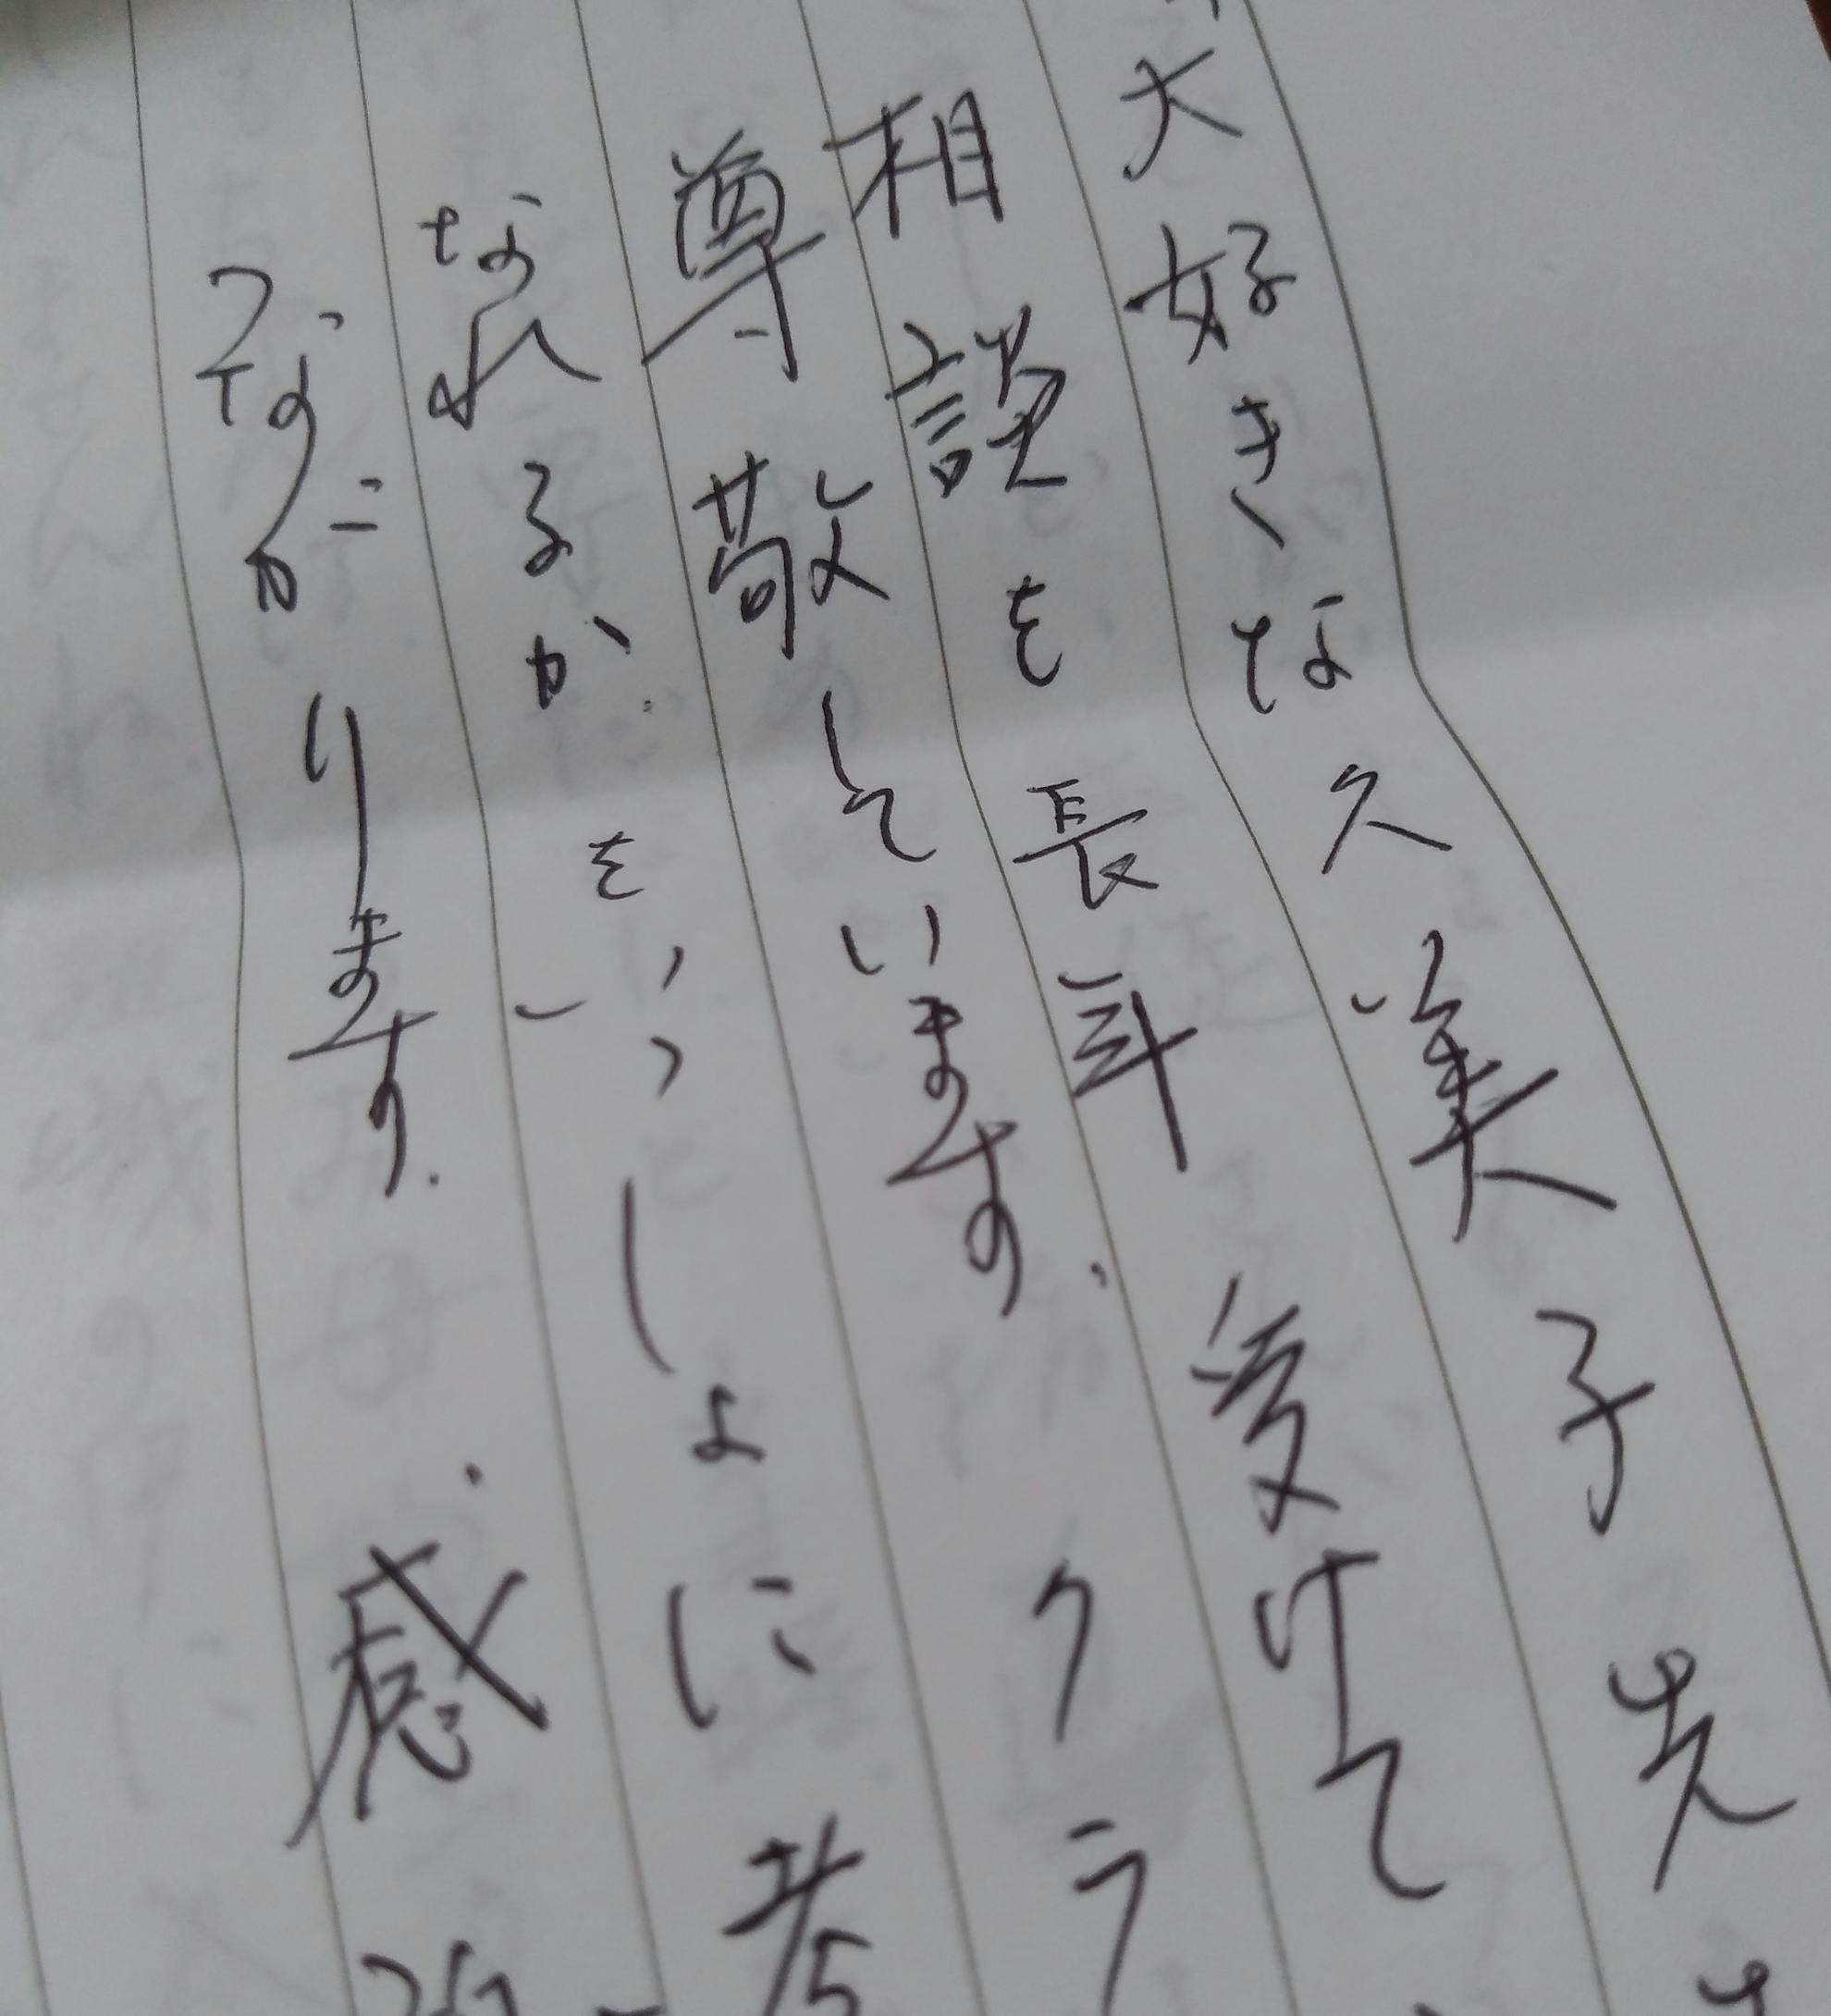 大好きな久美子先
相談を長時受けて
尊敬しています。クラ
なれるかを、いっしょに考
ながります。感